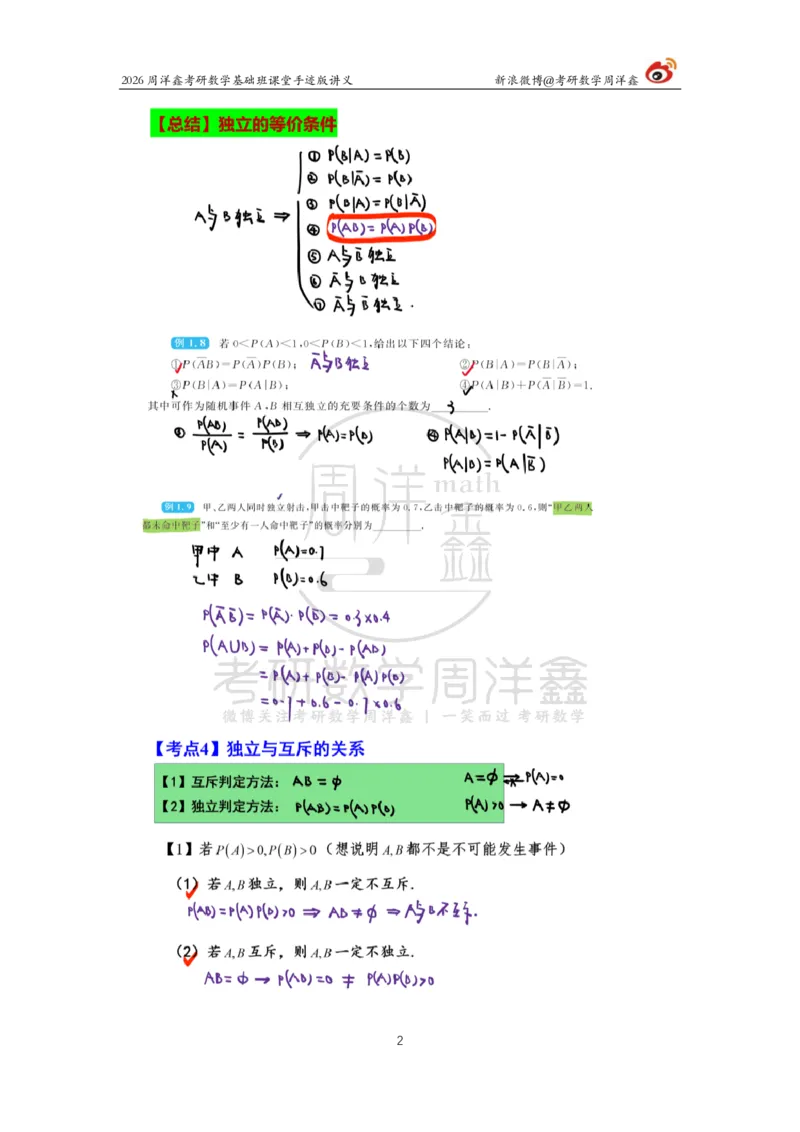 2026 周洋鑫考研数学基础班课堂手迹版讲义 新浪微博@考研数学周洋鑫
【总结】独立的等价条件
A与B独立 ⇒
① P(B|A)=P(B)
② P(B|A̅)=P(B)
③ P(B|A)=P(B|A̅)
④ P(AB)=P(A)P(B)
⑤ A与B̅独立
⑥ A̅与B独立
⑦ A̅与B̅独立.
例 1.8 若 0<P(A)<1,0<P(B)<1,给出以下四个结论:
①P(A̅B)=P(A̅)P(B); A̅与B独立 ②P(B|A)=P(B|A̅);
③P(B|A)=P(A|B); ④P(A|B)+P(A̅|B̅)=1.
其中可作为随机事件 A,B 相互独立的充要条件的个数为 3 .
③ P(AB)/P(A) = P(AB)/P(B) ⇒ P(A)=P(B) ④ P(A|B)=1-P(A̅|B̅)
P(A|B)=P(A|B̅)
周洋鑫 math
例 1.9 甲、乙两人同时独立射击,甲击中靶子的概率为 0.7,乙击中靶子的概率为 0.6,则“甲乙两人
都未命中靶子”和“至少有一人命中靶子”的概率分别为______.
甲中 A P(A)=0.7
乙中 B P(B)=0.6
P(A̅B̅)=P(A̅)·P(B̅)=0.3×0.4
P(A∪B)=P(A)+P(B)-P(AB)
=P(A)+P(B)-P(A)P(B)
=0.7+0.6-0.7×0.6
考研数学周洋鑫
微博关注考研数学周洋鑫 | 一笑而过 考研数学
【考点4】独立与互斥的关系
【1】互斥判定方法: AB=φ A=φ ⇄ P(A)=0
【2】独立判定方法: P(AB)=P(A)P(B) P(A)>0 → A≠φ
【1】若 P(A)>0,P(B)>0(想说明 A,B 都不是不可能发生事件)
(1)若 A,B 独立,则 A,B 一定不互斥.
P(AB)=P(A)P(B)>0 ⇒ AB≠φ ⇒ A与B不互斥.
(2)若 A,B 互斥,则 A,B 一定不独立.
AB=φ → P(AB)=0 ≠ P(A)P(B)>0
2